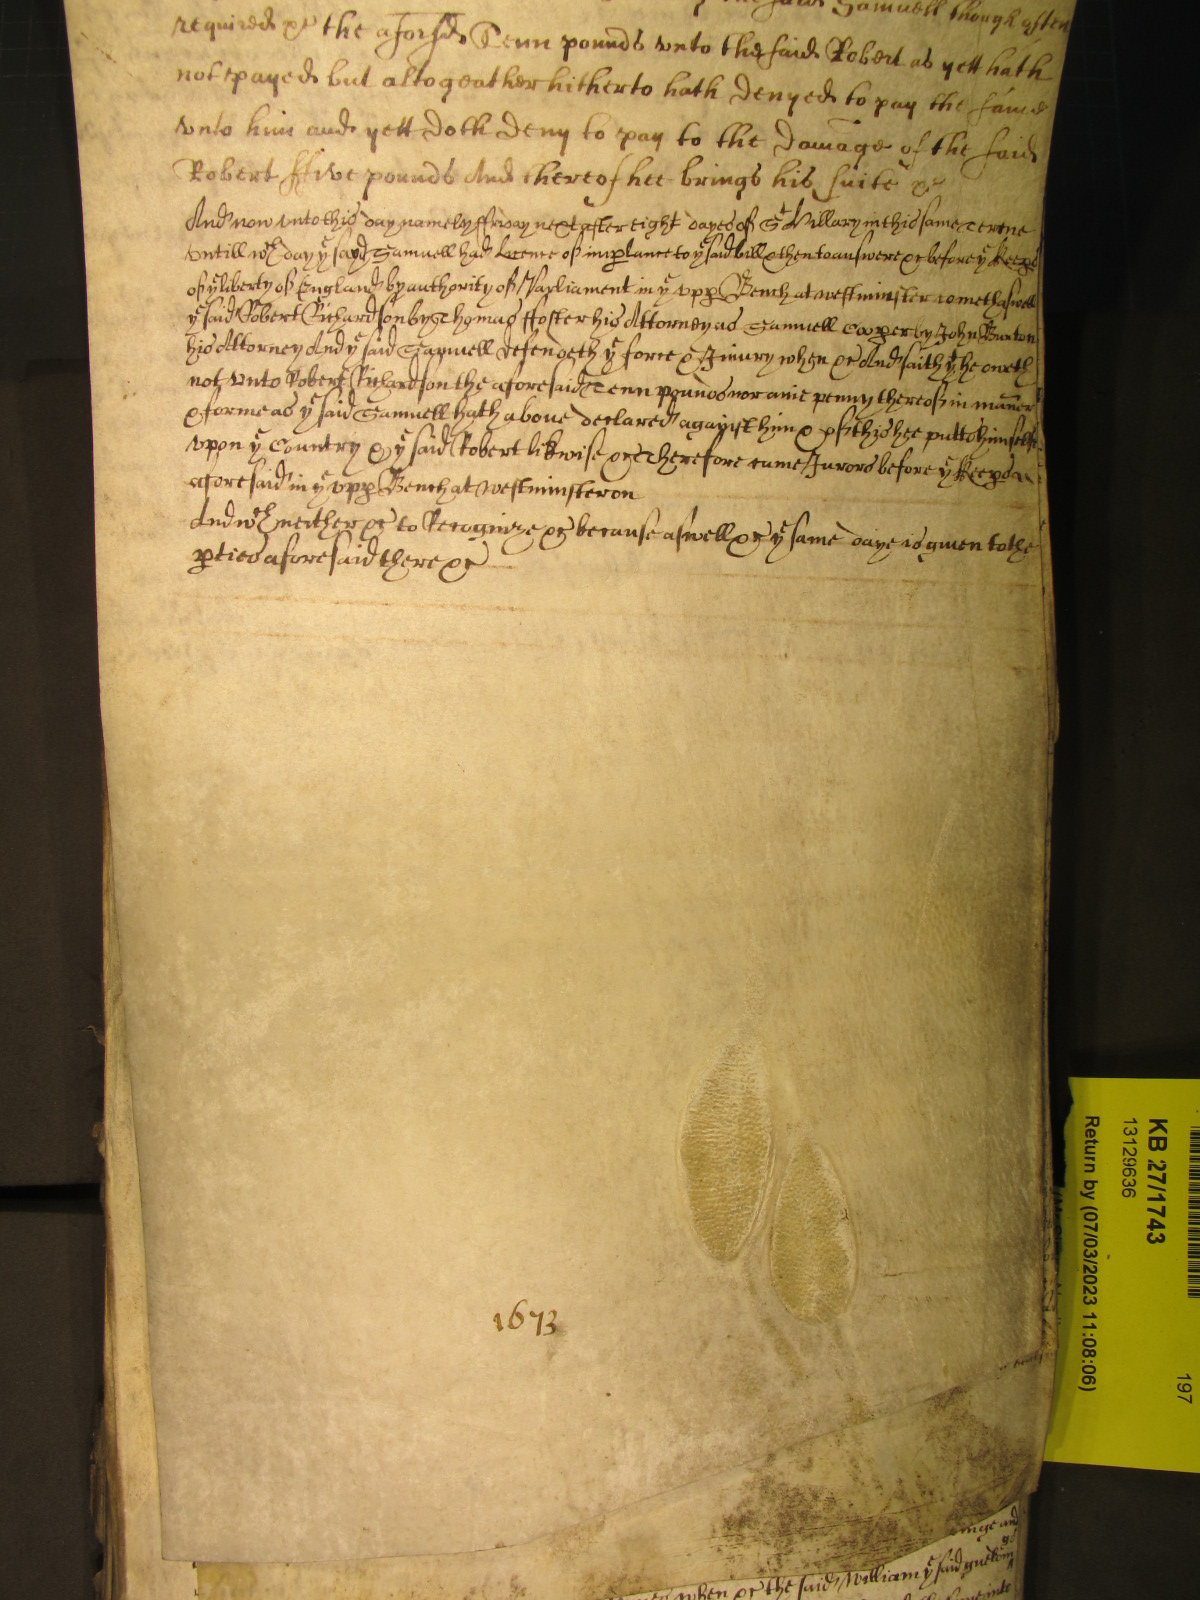 the said Samuell though often
required &c the aforsd Tenn pounds vnto the said Robert as yett hath
not payed but altogeather hitherto hath denyed to pay the same
vnto him and yett doth deny to pay to the damage of the said
Robert ffive pounds And thereof hee brings his suite &c
And now vnto this day namely ffriday next after eight dayes of St Hillary in this same Terme
vntill wch day ye sayd Samuell had licence of imparlance to ye said bill & then to answere &c before ye Keeprs
of ye liberty of England by authority of Parliament in ye vpp Bench at westminster cometh aswell
ye said Robert Richardson by Thomas ffoster his Attorney as Samuell Cooper by John Burton
his Attorney And ye said Samuell defendeth ye force & Iniury when &c And saith yt he oweth
not vnto Robert Richardson the aforesaid Tenn pounds nor anie penny thereof in maner
& forme as ye said Samuell hath aboue declared against him & of this hee putts himselfe
vpon ye Country & ye said Robert likwise &c Therefore came Jurors before ye Keeprs
aforesaid in ye vpp Bench at westminster on
And wch neither &c to Recognize &c because aswell &c ye same daye is given to the
pties aforesaid there &c
1673
KB 27/1743
13129636
Return by (07/03/2023 11:08:06)
197
inge and
when &c the said William ye said